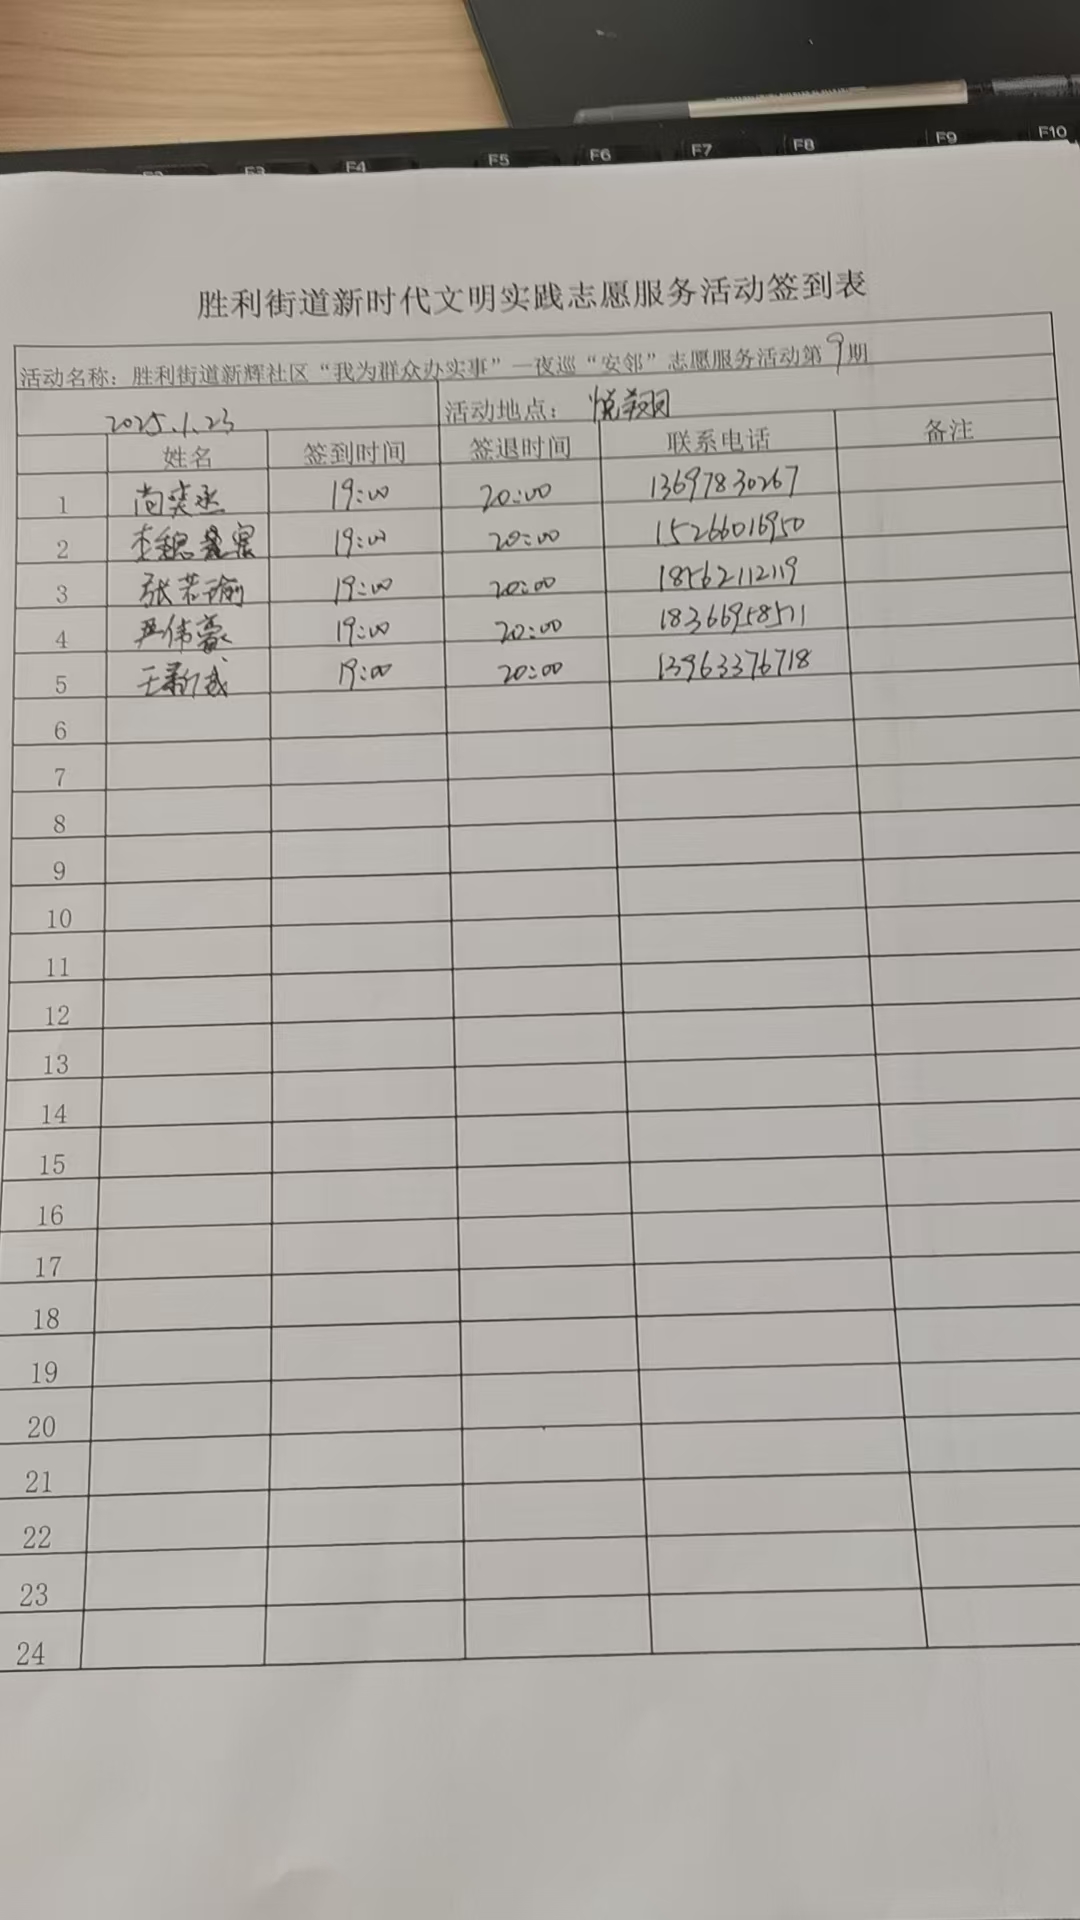 F2 F3 F4 F5 F6 F7 F8 F9 F10
胜利街道新时代文明实践志愿服务活动签到表
活动名称：胜利街道新辉社区“我为群众办实事”—夜巡“安邻”志愿服务活动第9期
2025.1.23 活动地点： 悦翔园
姓名 签到时间 签退时间 联系电话 备注
1 尚奕丞 19:00 20:00 13697830267
2 李魏 19:00 20:00 15266016950
3 张若瑜 19:00 20:00 18562112119
4 严伟豪 19:00 20:00 18366958571
5 王新成 19:00 20:00 13963376718
6
7
8
9
10
11
12
13
14
15
16
17
18
19
20
21
22
23
24